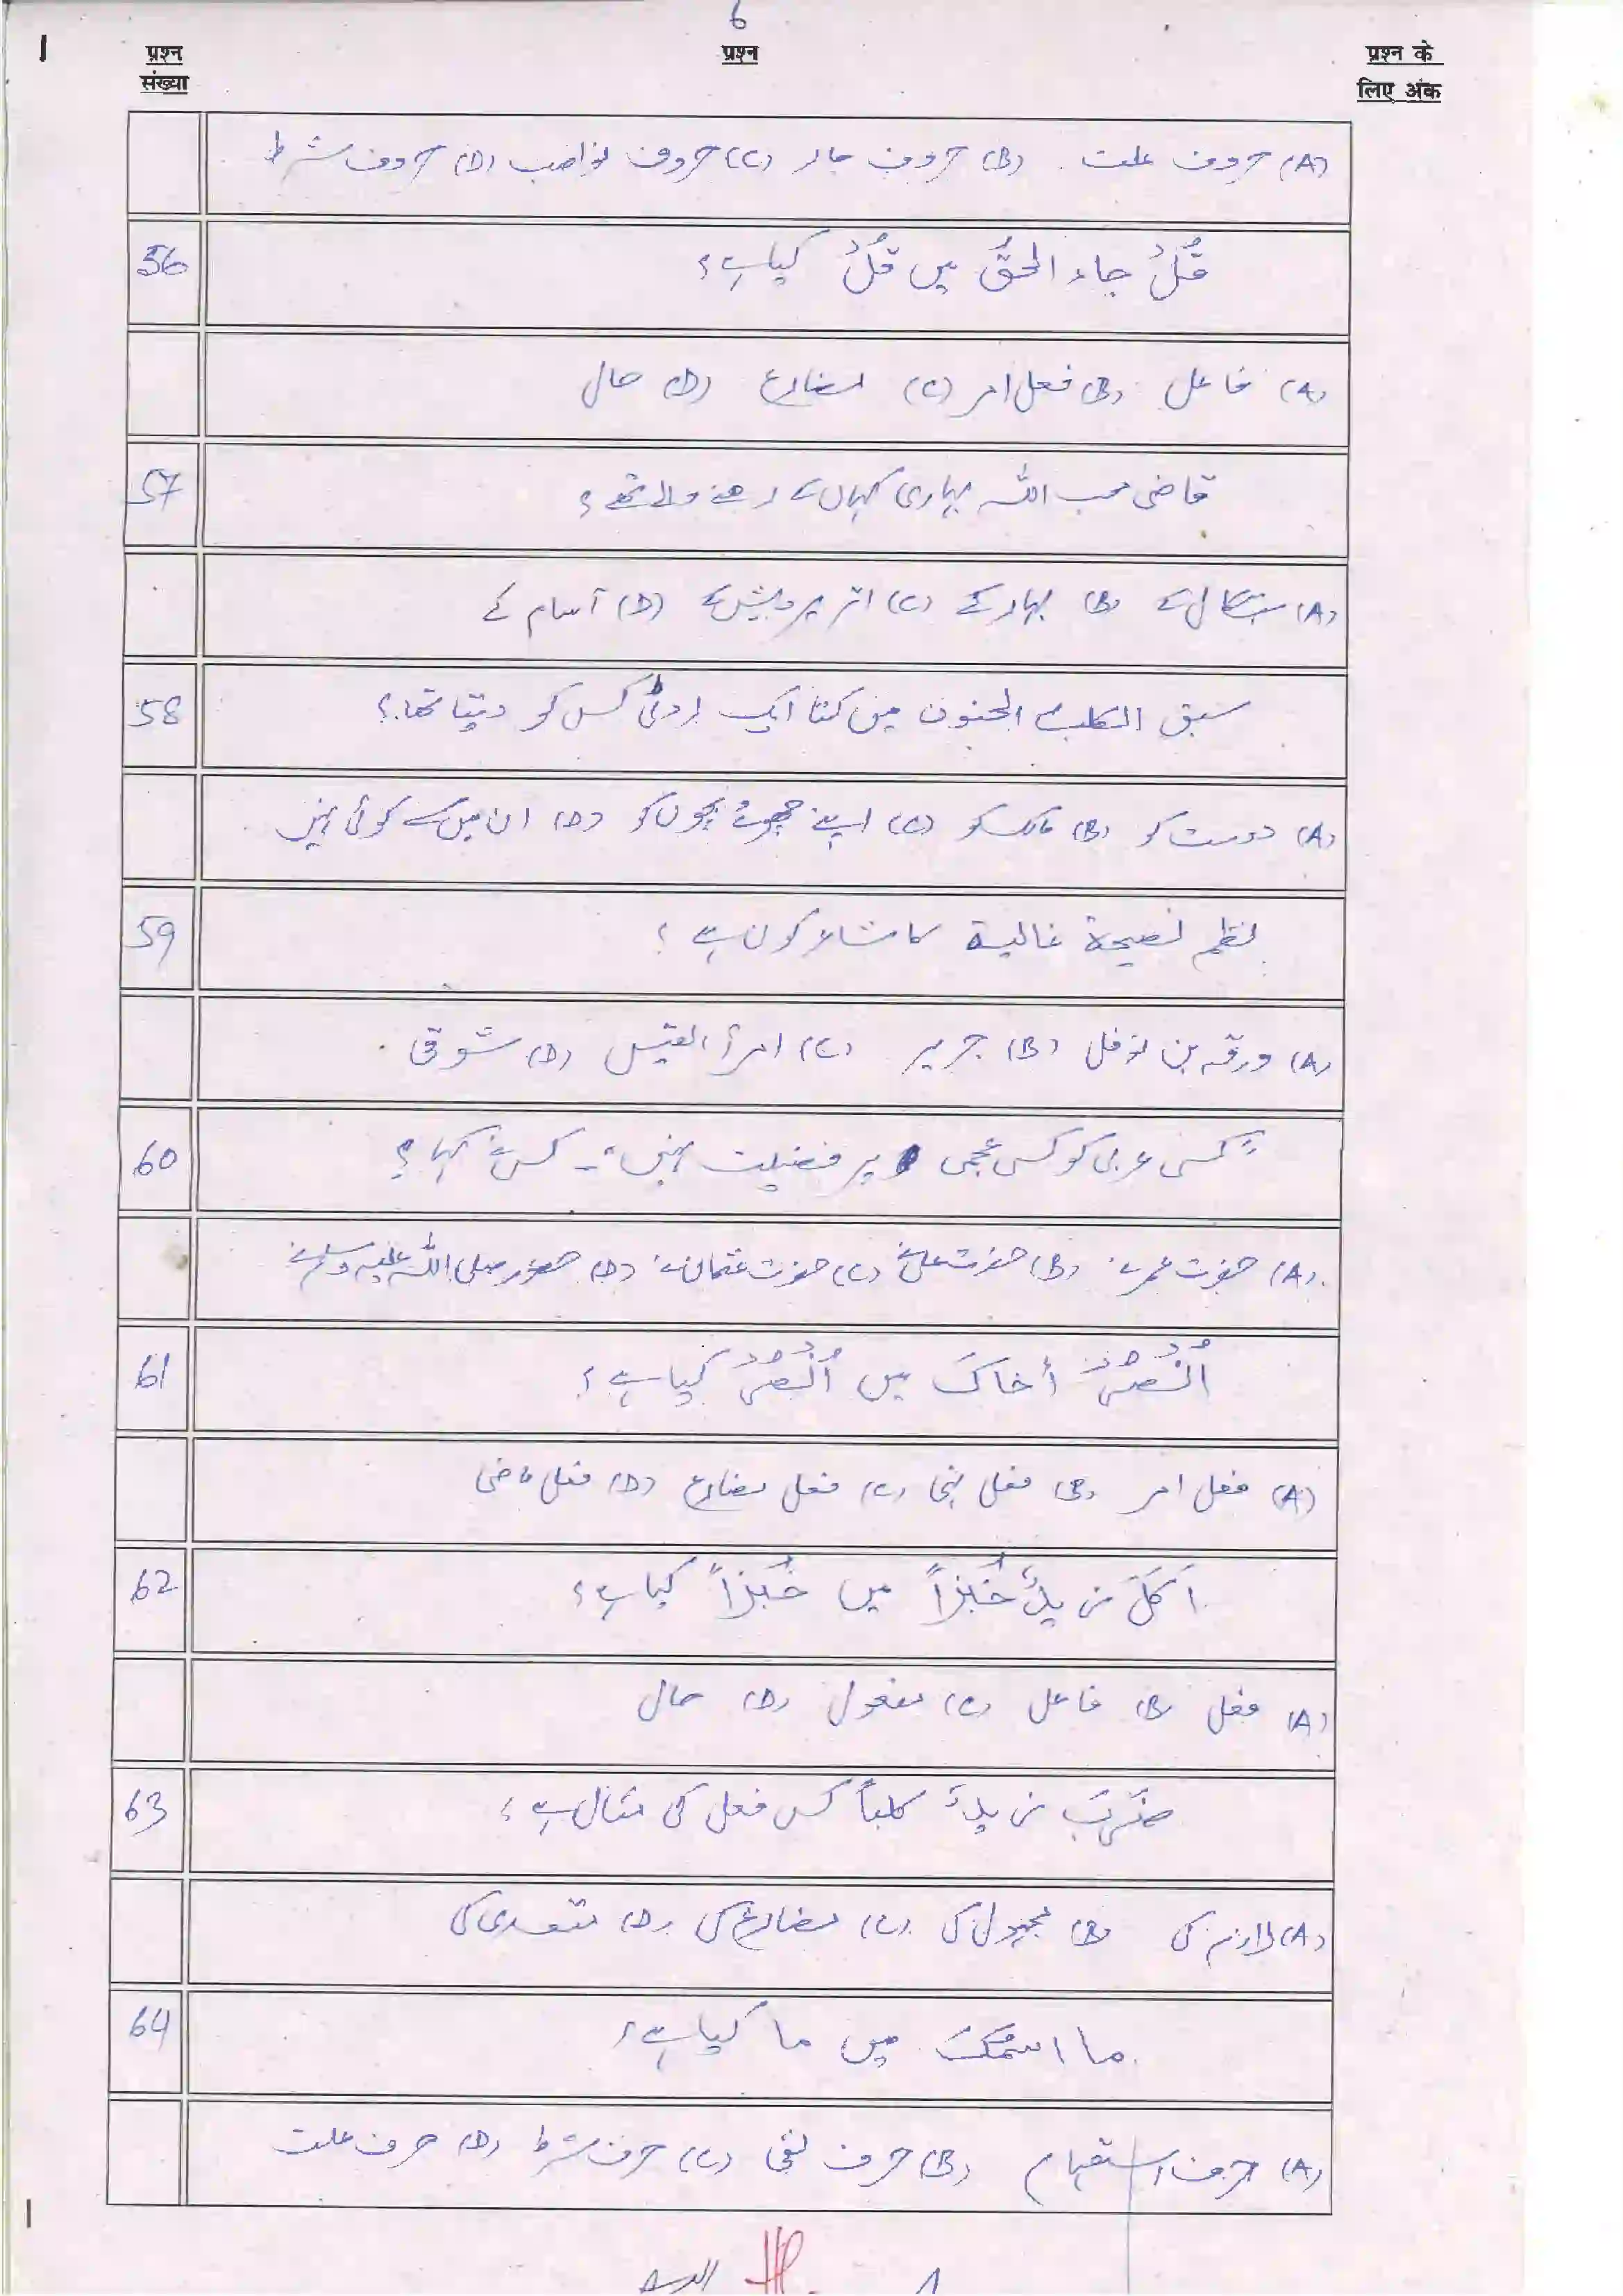 6
प्रश्न
संख्या
प्रश्न
प्रश्न के
लिए अंक
(A) حروف علت (B) حروف جار (C) حروف نواصب (D) حروف شرط
56
قُلْ جاء الحقُّ میں قُلْ کیا ہے؟
(A) فاعل (B) فعل امر (C) مضارع (D) حال
57
قاضی محب اللہ بہاری کہاں کے رہنے والے تھے؟
(A) بنگال کے (B) بہار کے (C) اتر پردیش کے (D) آسام کے
58
سبق الکلب الجنون میں کتا ایک روٹی کس کو دیتا تھا؟
(A) دوست کو (B) مالک کو (C) اپنے چھوٹے بچوں کو (D) ان میں سے کوئی نہیں
59
نظم نصیحة غالیة کا شاعر کون ہے؟
(A) ورقہ بن نوفل (B) جریر (C) امرأ القیس (D) شوقی
60
"کسی عربی کو کسی عجمی پر فضیلت نہیں"۔ کس نے کہا؟
(A) حضرت عمر نے (B) حضرت علی نے (C) حضرت عثمان نے (D) حضور صلی اللہ علیہ وسلم نے
61
اُنْصُرْ أخاکَ میں اُنْصُرْ کیا ہے؟
(A) فعل امر (B) فعل نہی (C) فعل مضارع (D) فعل ماضی
62
اَکَلَ زیدٌ خُبْزاً میں خُبْزاً کیا ہے؟
(A) فعل (B) فاعل (C) مفعول (D) حال
63
ضَرَبَ زیدٌ کلباً کس فعل کی مثال ہے؟
(A) لازم کی (B) مجہول کی (C) مضارع کی (D) متعدی کی
64
ما اسمُکَ میں ما کیا ہے؟
(A) حرف استفہام (B) حرف نفی (C) حرف شرط (D) حرف علت